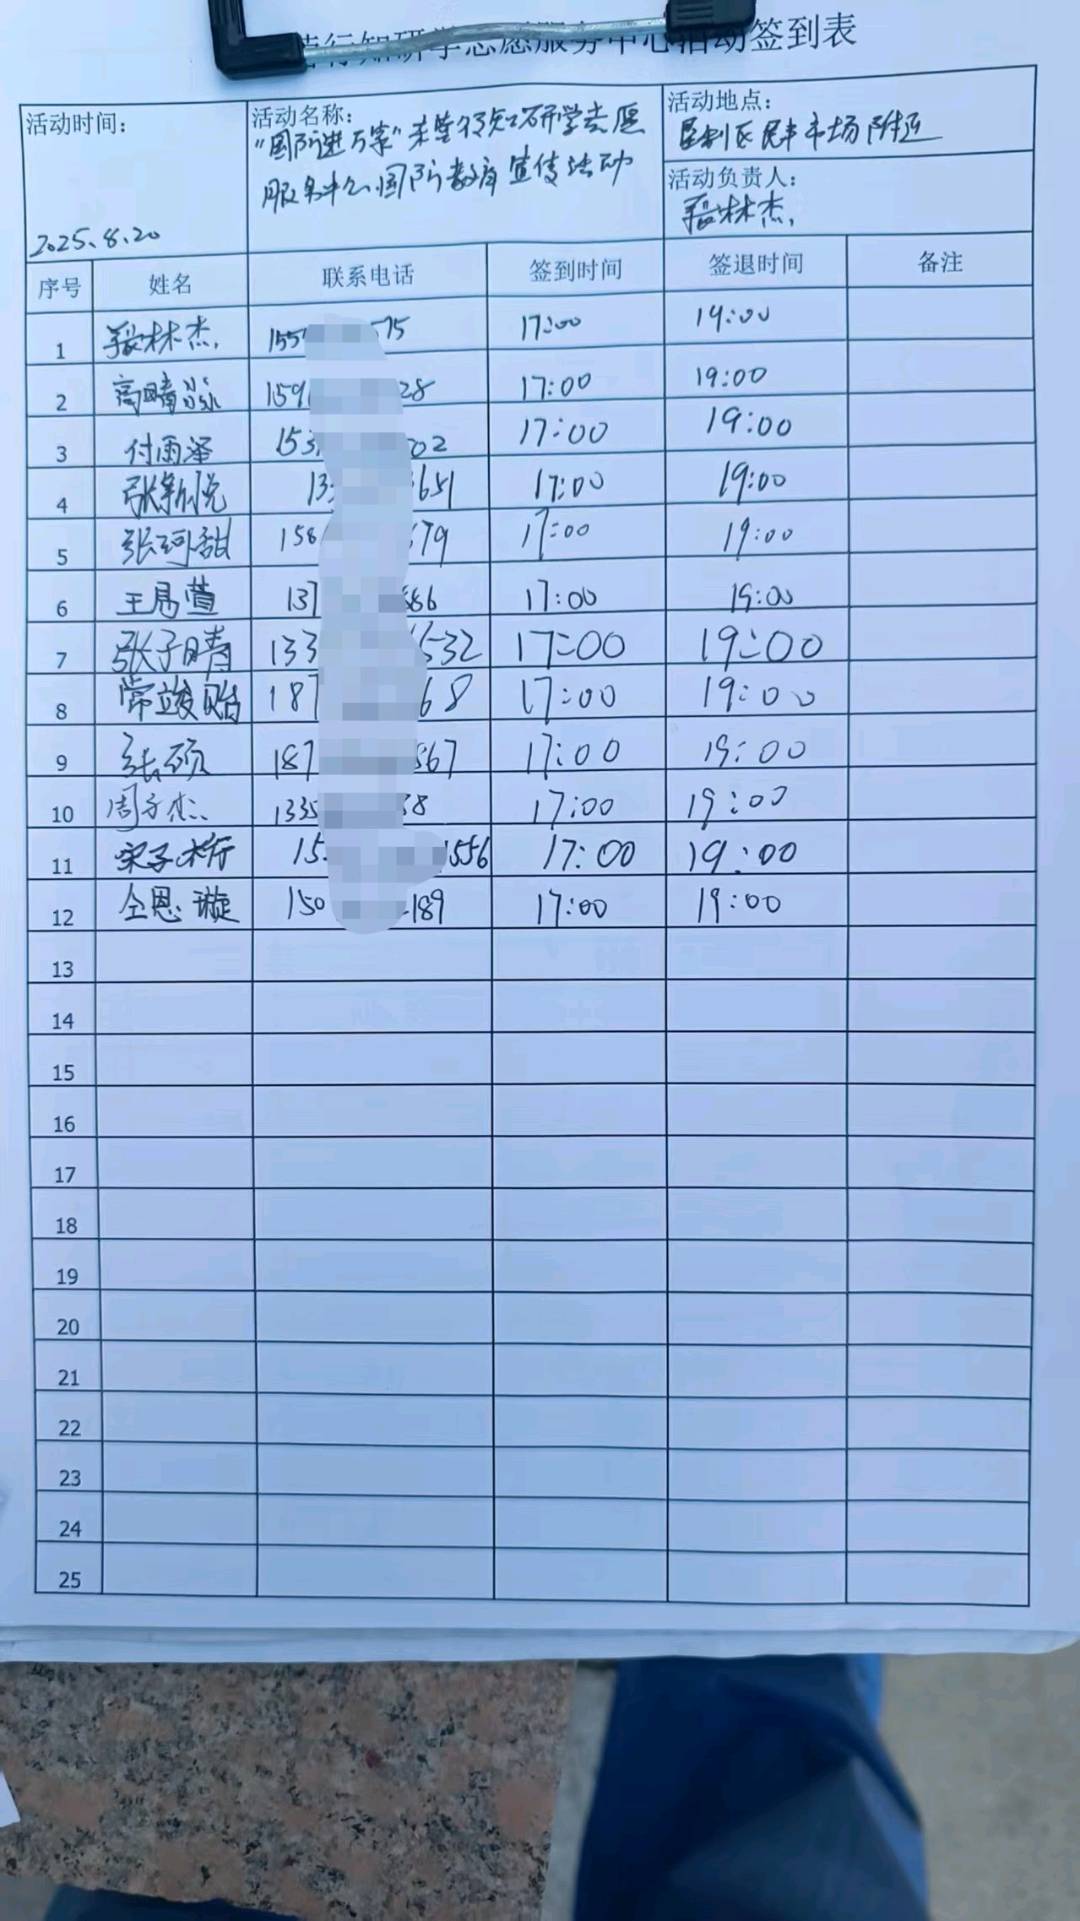 行知研学志愿服务中心活动签到表
活动时间：
2025.8.20
活动名称：
"国防进万家" 行知研学志愿
服务中心国防教育宣传活动
活动地点：
垦利区民丰市场附近
活动负责人：
张林杰
序号 姓名 联系电话 签到时间 签退时间 备注
1 张林杰 155 575 17:00 19:00
2 高晴 159 28 17:00 19:00
3 付雨泽 153 02 17:00 19:00
4 张新悦 13 651 17:00 19:00
5 张珂甜 158 679 17:00 19:00
6 王禹萱 137 886 17:00 19:00
7 张子晴 133 532 17:00 19:00
8 常竣贻 187 68 17:00 19:00
9 张硕 187 867 17:00 19:00
10 周子杰 1335 38 17:00 19:00
11 宋子衿 15 1556 17:00 19:00
12 仝恩璇 150 189 17:00 19:00
13
14
15
16
17
18
19
20
21
22
23
24
25